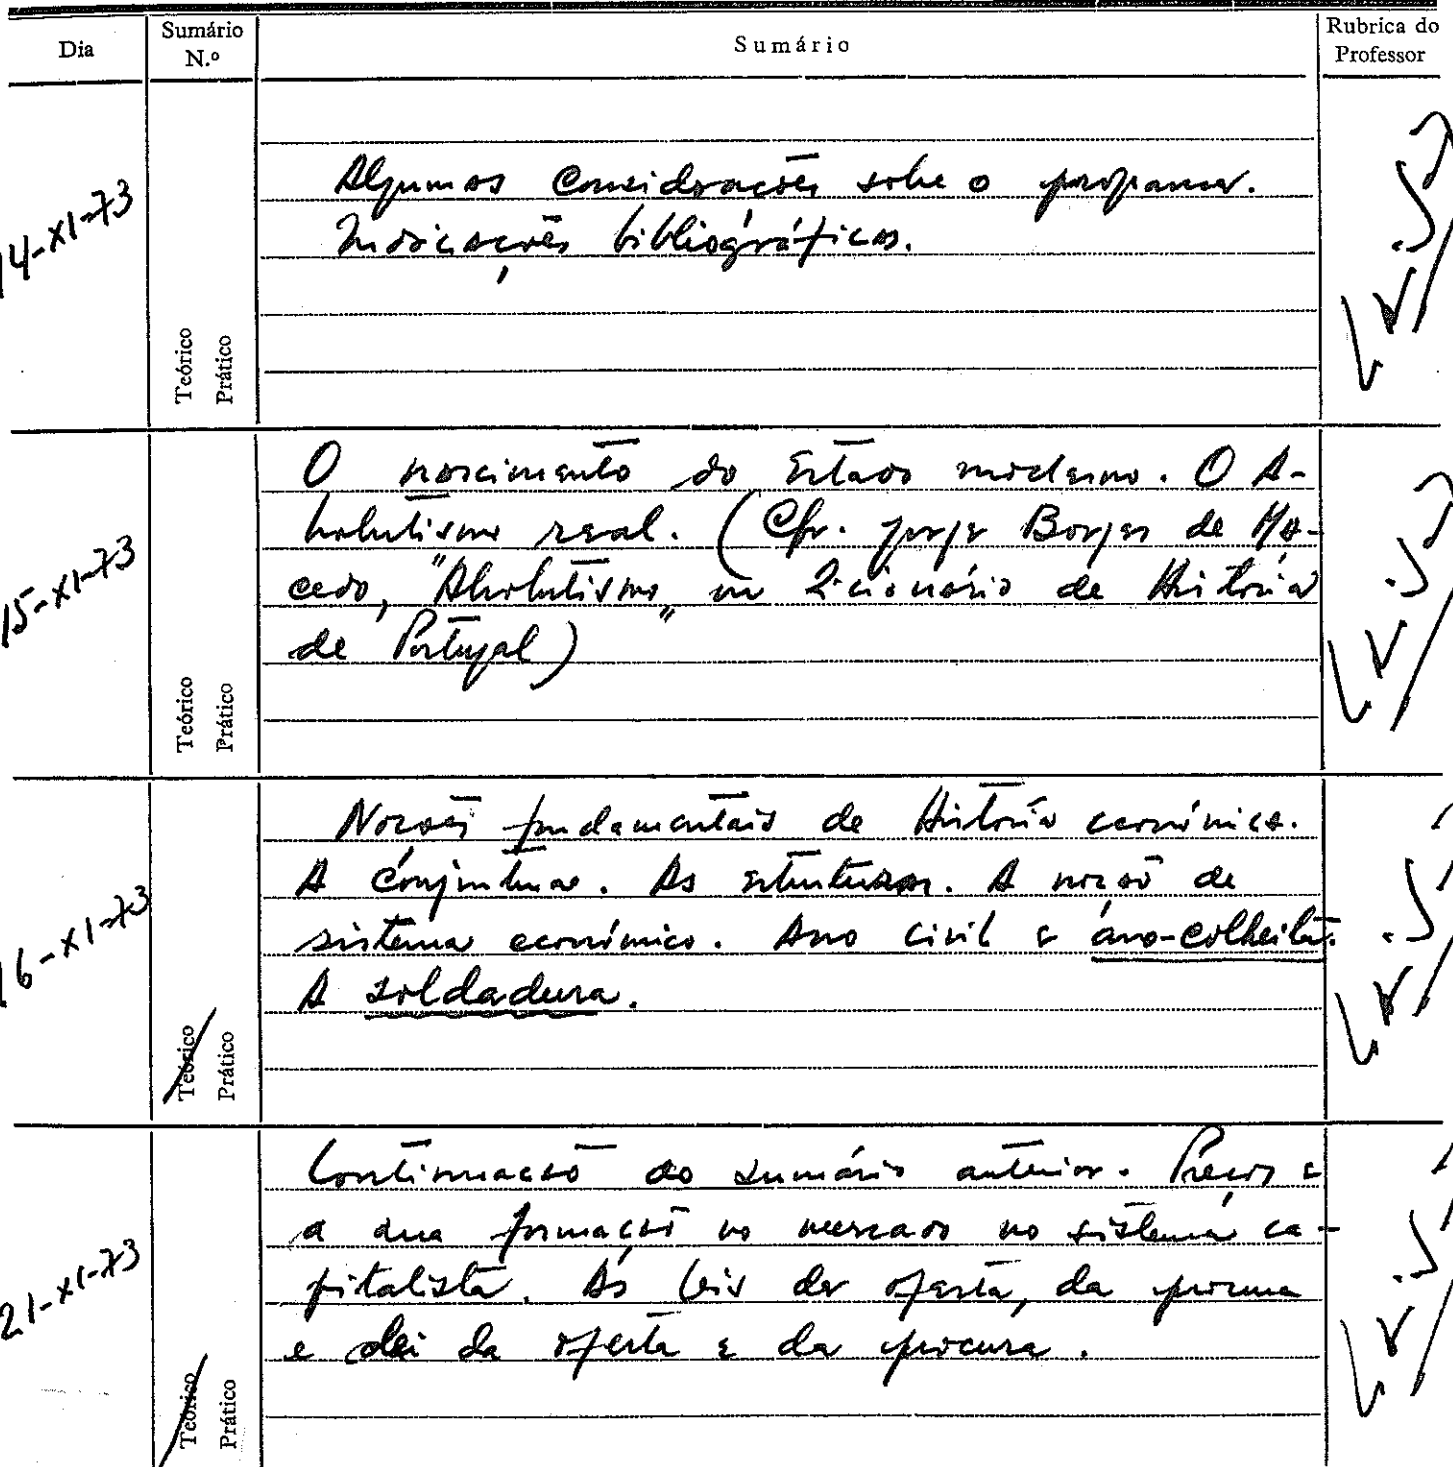 Dia
Sumário N.º
Sumário
Rubrica do Professor
14-XI-73
Teórico
Prático
Algumas considerações sobre o programa.
Indicações bibliográficas.
15-XI-73
Teórico
Prático
O nascimento do Estado moderno. O A-
bsolutismo real. (Cfr. Jorge Borges de Ma-
cedo, "Absolutismo" in Dicionário de História
de Portugal)
16-XI-73
Teórico
Prático
Noções fundamentais de História económica.
A conjuntura. As estruturas. A noção de
sistema económico. Ano civil e ano-colheita.
A soldadura.
21-XI-73
Teórico
Prático
Continuação do sumário anterior. Preços e
a sua formação no mercado no sistema ca-
pitalista. As leis da oferta, da procura
e lei da oferta e da procura.